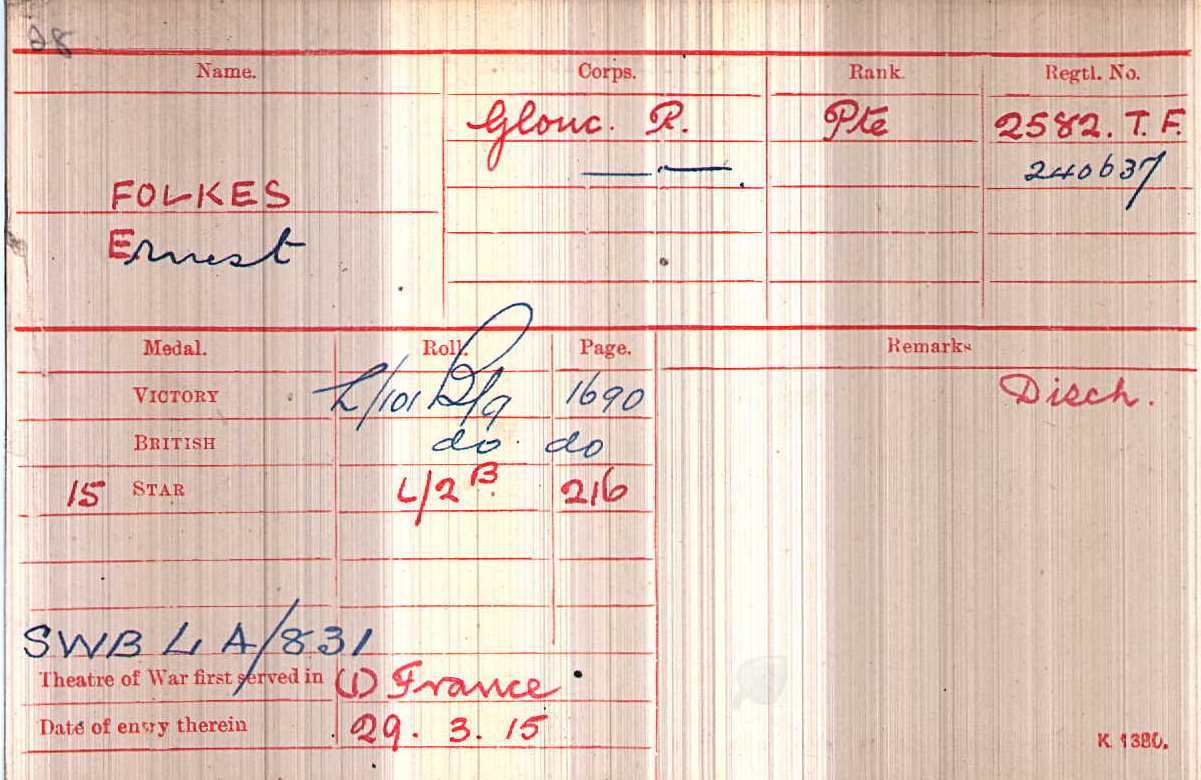 Name. Corps. Rank. Regtl. No.
Glouc. R. Pte 2582. T. F.
—"— 240637
FOLKES
Ernest
Medal. Roll. Page. Remarks
VICTORY L/101 B/9 1690 Disch.
BRITISH do. do
15 STAR L/2 B 216
SWB L A/831
Theatre of War first served in (1) France
Date of entry therein 29. 3. 15
K 1380.